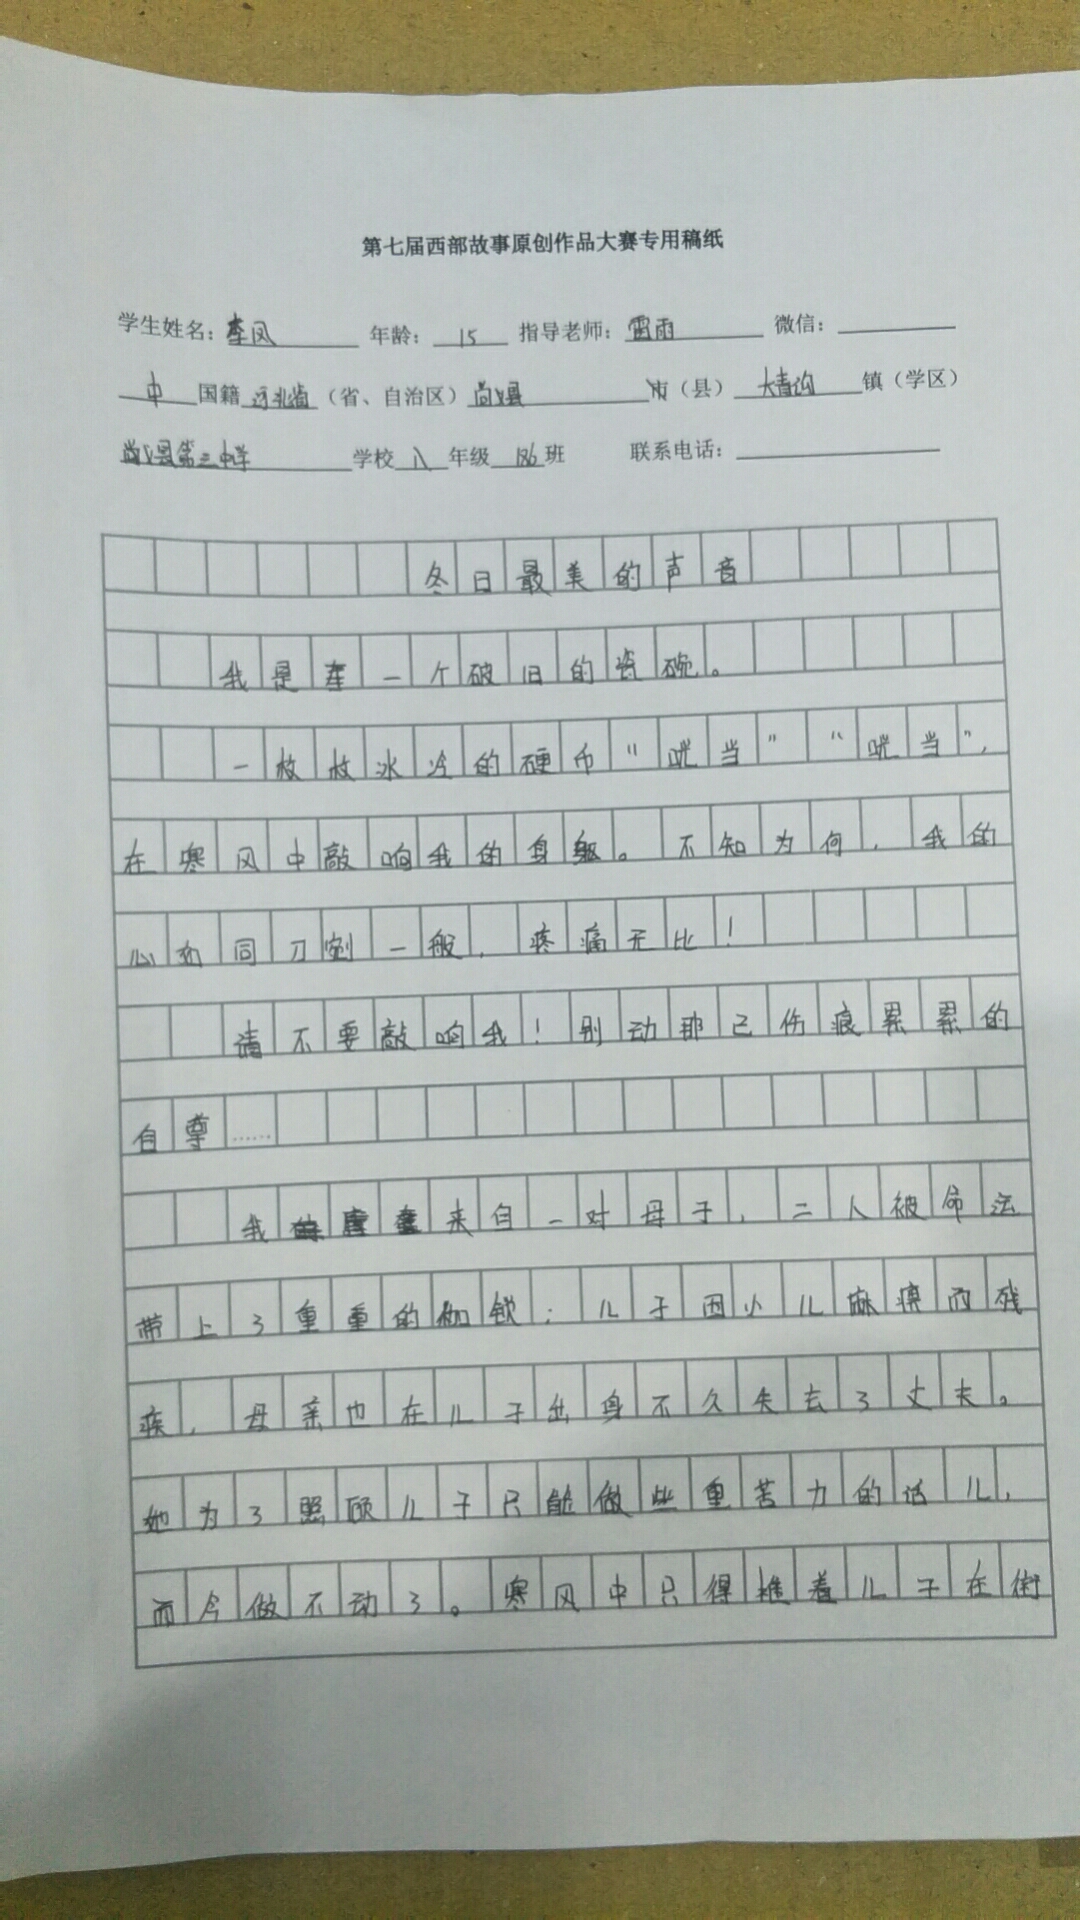 第七届西部故事原创作品大赛专用稿纸
学生姓名：李风 年龄：15 指导老师：雷雨 微信：
中 国籍 河北省（省、自治区）尚义县 市（县） 大青沟 镇（学区）
尚义县第三中学 学校 八 年级 186 班 联系电话：
冬日最美的声音
我是一个破旧的瓷碗。
一枚枚冰冷的硬币“咣当”“咣当”，
在寒风中敲响我的身躯。不知为何，我的
心如同刀割一般，疼痛无比！
请不要敲响我！别动那已伤痕累累的
自尊……
我来自一对母子，二人被命运
带上了重重的枷锁：儿子因小儿麻痹而残
疾，母亲也在儿子出身不久失去了丈夫。
她为了照顾儿子只能做些重苦力的活儿，
而今做不动了。寒风中只得推着儿子在街